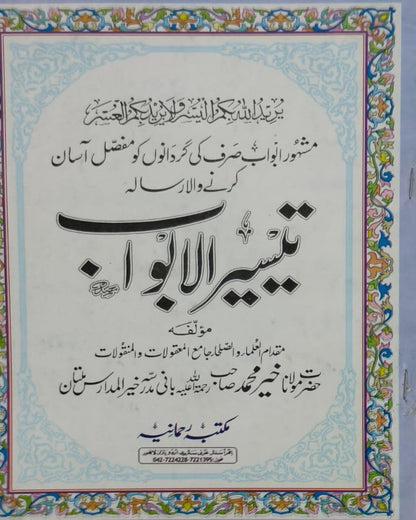 يُرِيْدُ اللهُ بِكُمُ الْيُسْرَ وَلَا يُرِيْدُ بِكُمُ الْعُسْرَ
مشہور ابواب صرف کی گردانوں کو مفصل آسان
کرنے والا رسالہ
تيسير الابواب
مؤلفہ
مقدام العلماء والصلحاء جامع المعقولات والمنقولات
حضرت مولانا خیر محمد صاحب رحمۃ اللہ علیہ بانی مدرسہ خیر المدارس ملتان
مکتبہ رحمانیہ
اقرأ سنٹر غزنی سٹریٹ اردو بازار لاہور
فون: 042-7224228-7221395